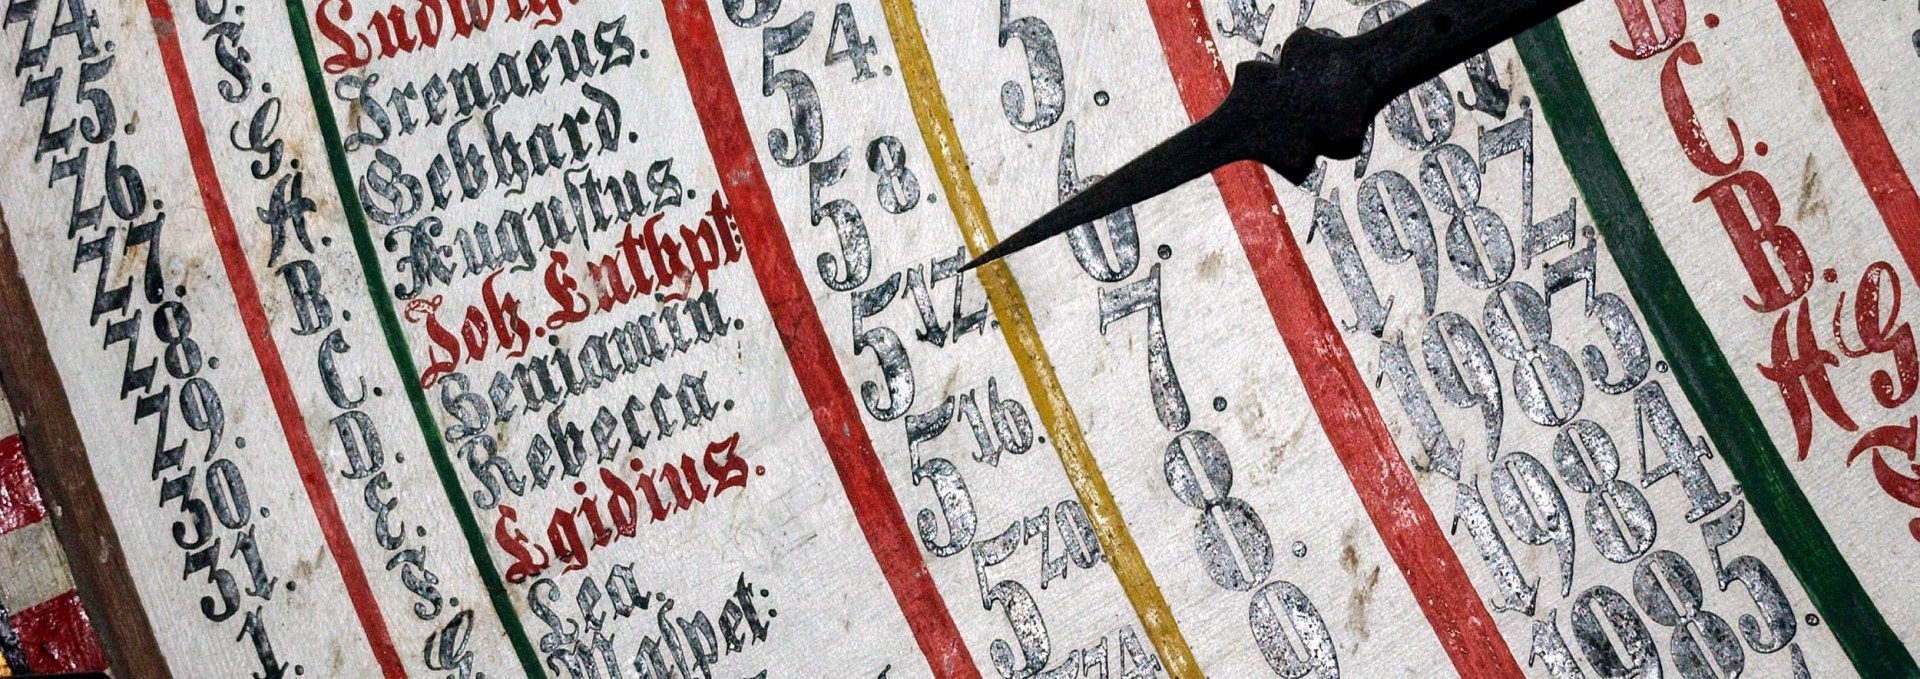 24.
25.
26.
27.
28.
29.
30.
31.
1.
F.
G.
A.
B.
C.
D.
E.
F.
G.
Ludwig.
Irenaeus.
Gebhard.
Auguſtus.
Joh. Enthpt:
Beniamin.
Rebecca.
Egidius.
Lea.
Maſpet:
5 4.
5 8.
5 12.
5 16.
5 20
24
5.
6.
7.
8.
9
1981.
1982.
1983.
1984.
1985.
D.
C.
B.
A G